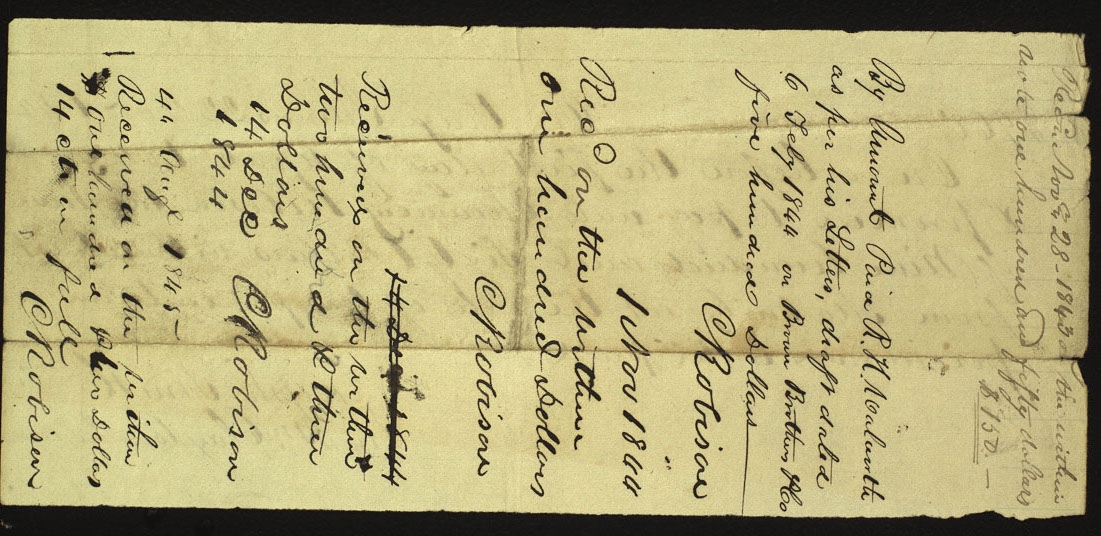 Recd Nov 28 - 1843 on the within
note one hundred and fifty dollars
$150.-
By Amount Paid R. H. Walworth
as per his Letters, draft dated
6 Feby 1844 on Brown Brothers & Co
five hundred Dollars
C Robison
Recd on the within
one hundred Dollars
1 Nov 1844
C Robison
Received on the within
14 Dec 1844
two hundred & three
Dollars
14 Dec
1844
C Robison
44 Augt 1845
Received on the within
one hundred & Dollars
14 cts in full
C Robison